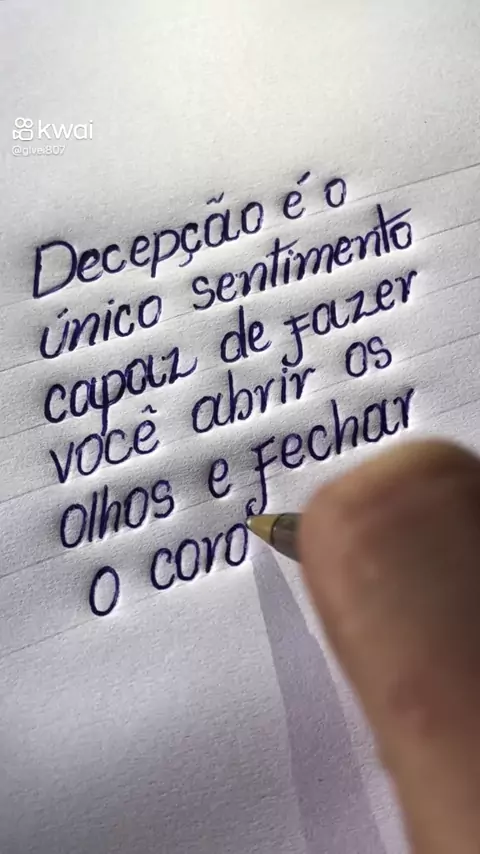 kwai
@glves807
Decepção é o
único sentimento
capaz de fazer
você abrir os
olhos e fechar
o coro